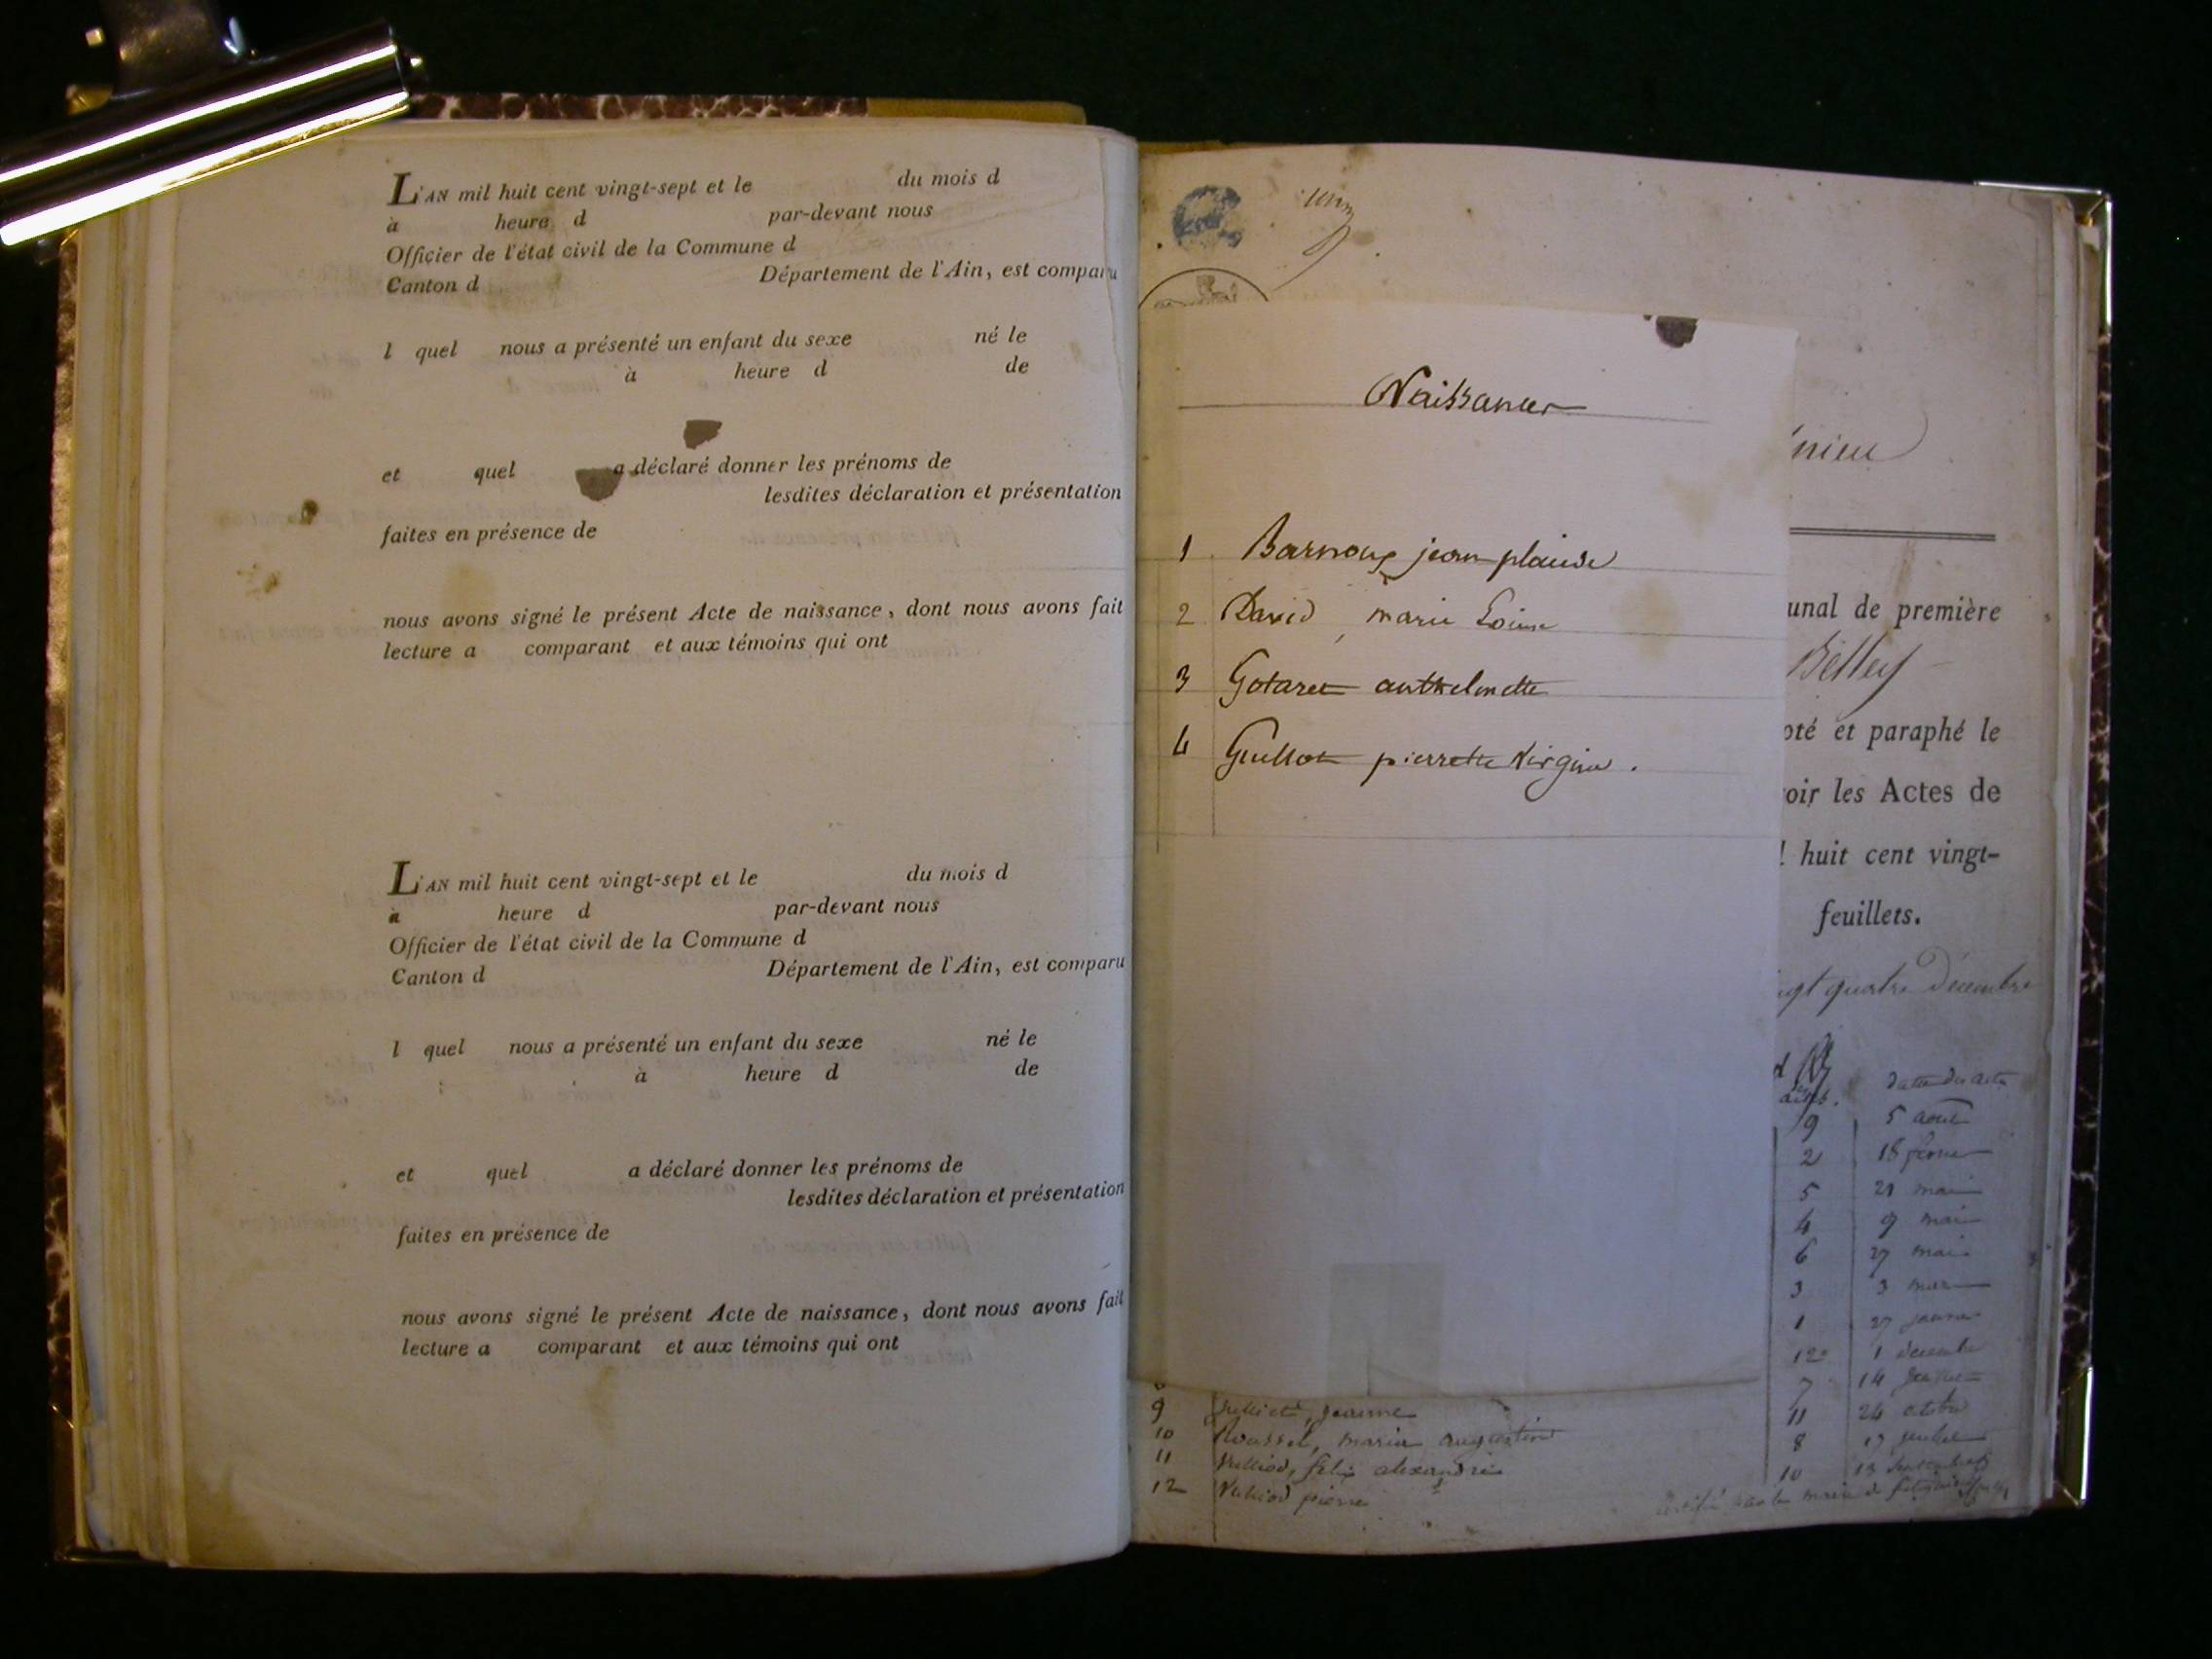 L'AN mil huit cent vingt-sept et le du mois d
à heure d par-devant nous
Officier de l'état civil de la Commune d
Canton d Département de l'Ain, est comparu
l quel nous a présenté un enfant du sexe né le
à heure d de
et quel a déclaré donner les prénoms de
lesdites déclaration et présentation
faites en présence de
nous avons signé le présent Acte de naissance, dont nous avons fait
lecture a comparant et aux témoins qui ont
L'AN mil huit cent vingt-sept et le du mois d
à heure d par-devant nous
Officier de l'état civil de la Commune d
Canton d Département de l'Ain, est comparu
l quel nous a présenté un enfant du sexe né le
à heure d de
et quel a déclaré donner les prénoms de
lesdites déclaration et présentation
faites en présence de
nous avons signé le présent Acte de naissance, dont nous avons fait
lecture a comparant et aux témoins qui ont
Naissances
1 Barnoux jean plaude
2 David, marie Louise
3 Gotaret anthelmette
4 Guillot pierrette virginie.
nieu
unal de première
Belley
oté et paraphé le
oir les Actes de
l huit cent vingt-
feuillets.
ngt quatre Décembre
date des actes
9 5 aout
2 18 fevrier
5 21 mai
4 9 mai
6 27 mai
3 3 mars
1 27 janvier
12 1 decembre
7 14 juillet
11 24 octobre
8 17 juillet
10 13 septembre
9 jeanne
10 maria augustine
11 félix alexandre
12 pierre